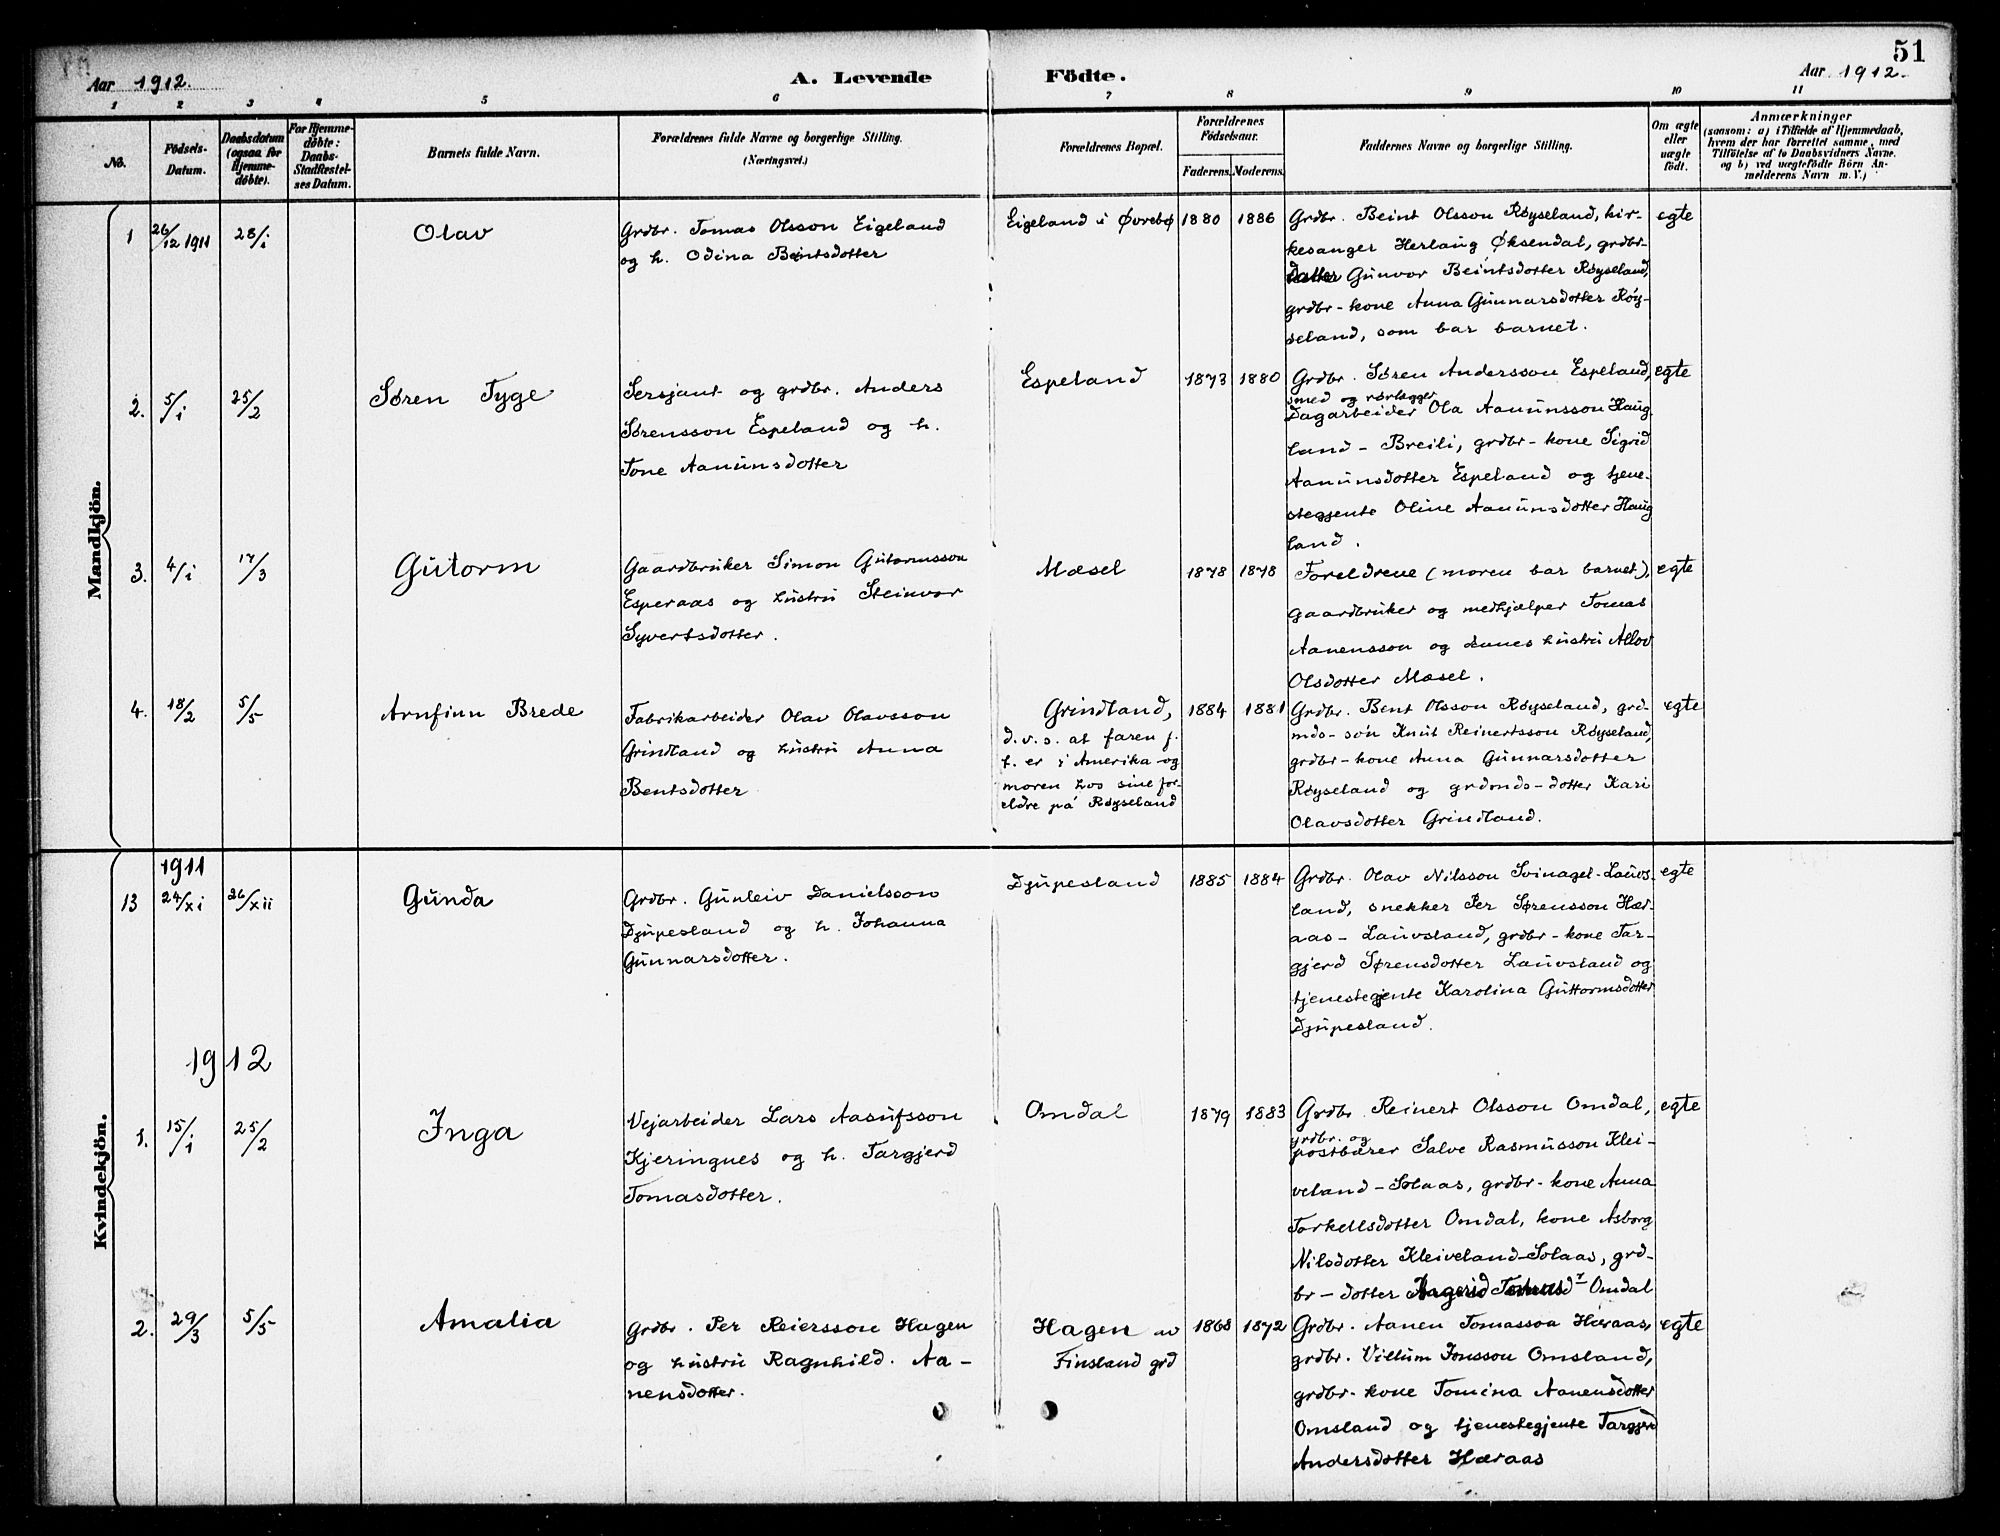 51
Aar 1912. A. Levende Födte. Aar 1912.
1 2 3 4 5 6 7 8 9 10 11
No.
Födsels-Datum.
Daabsdatum (ogsaa for Hjemme-döbte).
For Hjemme-döbte: Daabs-Stadfæstel-ses Datum.
Barnets fulde Navn.
Forældrenes fulde Navne og borgerlige Stilling.
(Næringsvei.)
Forældrenes Bopæl.
Forældrenes Födselsaar.
Faderens. Moderens.
Faddernes Navne og borgerlige Stilling.
Om ægte eller uægte födt.
Anmærkninger
(saasom: a) i Tilfælde af Hjemmedaab,
hvem der har forrettet samme, med
Tilföielse af to Daabsvidners Navne.
og b) ved uægtefödte Börn An-
melderens Navn m. V.)
Mandkjön.
1 26/12 1911 28/i Olav
Grdbr. Tomas Olsson Eigeland
og h. Odina Bentsdotter
Eigeland i Øvrebø 1880 1886
Grdbr. Beint Olsson Røyseland, kir-
kesanger Herlaug Øksendal, grdbr-
datter Gunvor Beintsdotter Røyseland,
grdbr-kone Anna Gunnarsdotter Røy-
seland, som bar barnet.
egte
2. 5/i 25/2 Søren Tyge
Sersjant og grdbr. Anders
Sørensson Espeland og h.
Tone Aanunsdotter
Espeland 1873 1880
Grdbr. Søren Andersson Espeland,
smed og rørlægger
Dagarbeider Ola Aanunsson Haug
land - Breili, grdbr-kone Sigrid
Aanunsdotter Espeland og tjene-
stegjente Oline Aanunsdotter Haug
land.
egte
3. 4/i 17/3 Gutorm
Gaardbruker Simon Gutormsson
Esperaas og hustru Steinvor
Syvertsdotter.
Mæsel 1878 1878
Foreldrene (moren bar barnet),
gaardbruker og medhjælper Tomas
Aanensson og dennes hustru Allov
Olsdotter Mæsel.
egte
4. 18/2 5/5 Arnfinn Brede
Fabrikarbeider Olav Olavsson
Grindland og hustru Anna
Bentsdotter
Grindland,
d.v.s. at faren f.
t. er i Amerika og
moren hos sine for-
eldre på Røyseland
1884 1881
Grdbr. Bent Olsson Røyseland, grd-
mds-søn Knut Reinertsson Røyseland,
grdbr-kone Anna Gunnarsdotter
Røyseland og grdmds-dotter Kari
Olavsdotter Grindland.
egte
Kvindekjön.
1911
13 24/xi 26/xii Gunda
Grdbr. Gunleiv Danielsson
Djupesland og h. Johanna
Gunnarsdotter.
Djupesland 1885 1884
Grdbr. Olav Nilsson Svinagel-Lauvs-
land, snekker Per Sørensson Hær-
aas - Lauvsland, grdbr-kone Tar-
gjerd Sørensdotter Lauvsland og
tjenestegjente Karolina Guttormsdotter
Djupesland.
egte
1912
1. 15/i 25/2 Inga
Vejarbeider Lars Aasufsson
Kjeringnes og h. Targjerd
Tomasdotter.
Omdal 1879 1883
Grdbr. Reinert Olsson Omdal,
grdbr. og
postbærer Salve Rasmusson Klei-
veland - Solaas, grdbr-kone Anna
Torkellsdotter Omdal, kone Asborg
Nilsdotter Kleiveland-Solaas, grd-
br - dotter Omdal
egte
2. 29/3 5/5 Amalia
Grdbr. Per Reiersson Hagen
og hustru Ragnhild. Aa-
nensdotter.
Hagen av
Finsland grd
1868 1872
Grdbr. Aanen Tomasson Hæraas,
grdbr. Villum Jonsson Omsland,
grdbr-kone Tomina Aanensdotter
Omsland og tjenestegjente Targjerd
Andersdotter Hæraas
egte